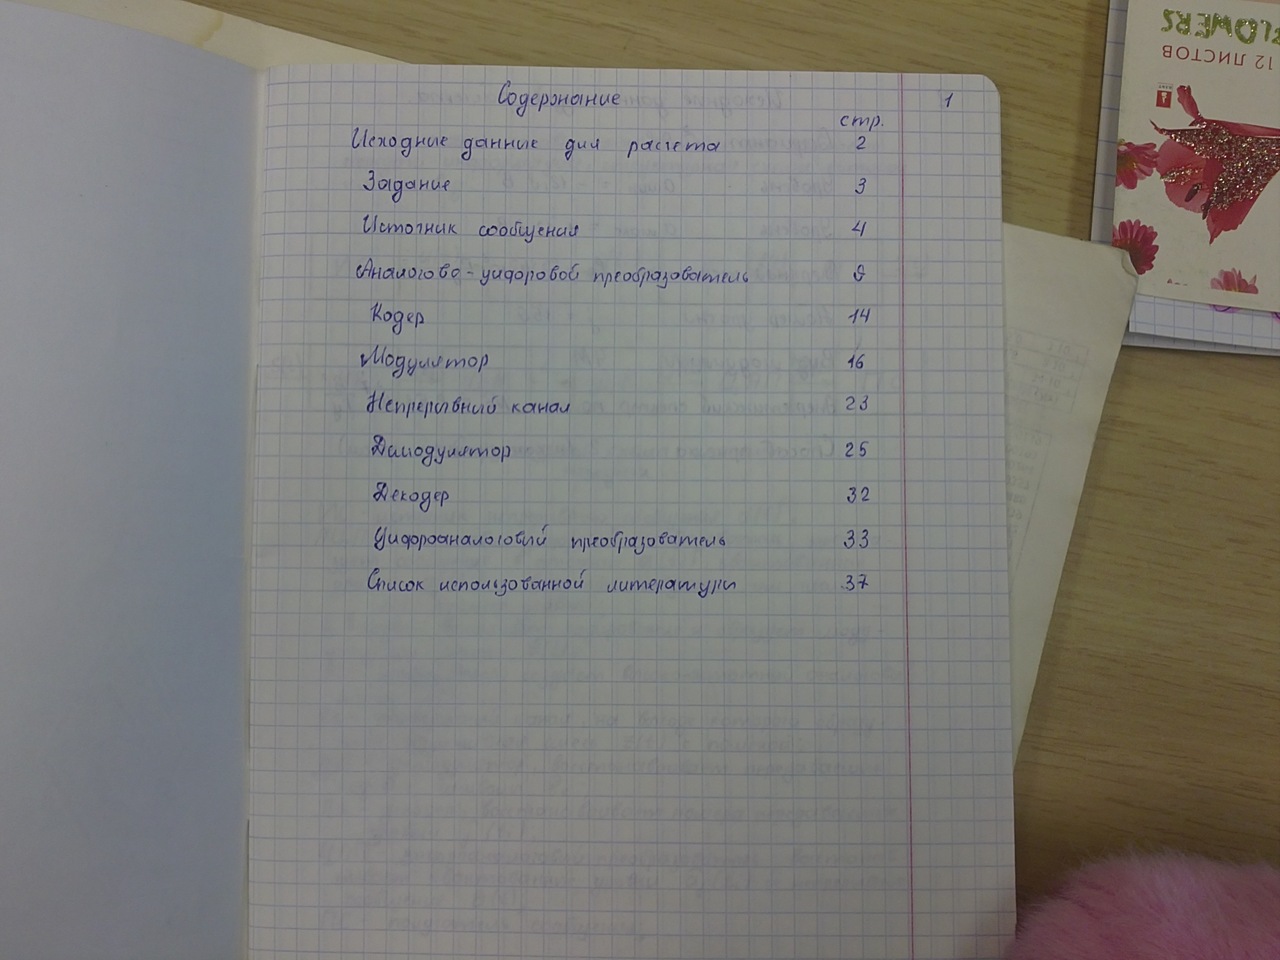 Содержание
1
стр.
Исходные данные для расчета 2
Задание 3
Источник сообщения 4
Аналогово-цифровой преобразователь 9
Кодер 14
Модулятор 16
Непрерывный канал 23
Демодулятор 25
Декодер 32
Цифроаналоговый преобразователь 33
Список использованной литературы 37
FLOWERS
12 ЛИСТОВ